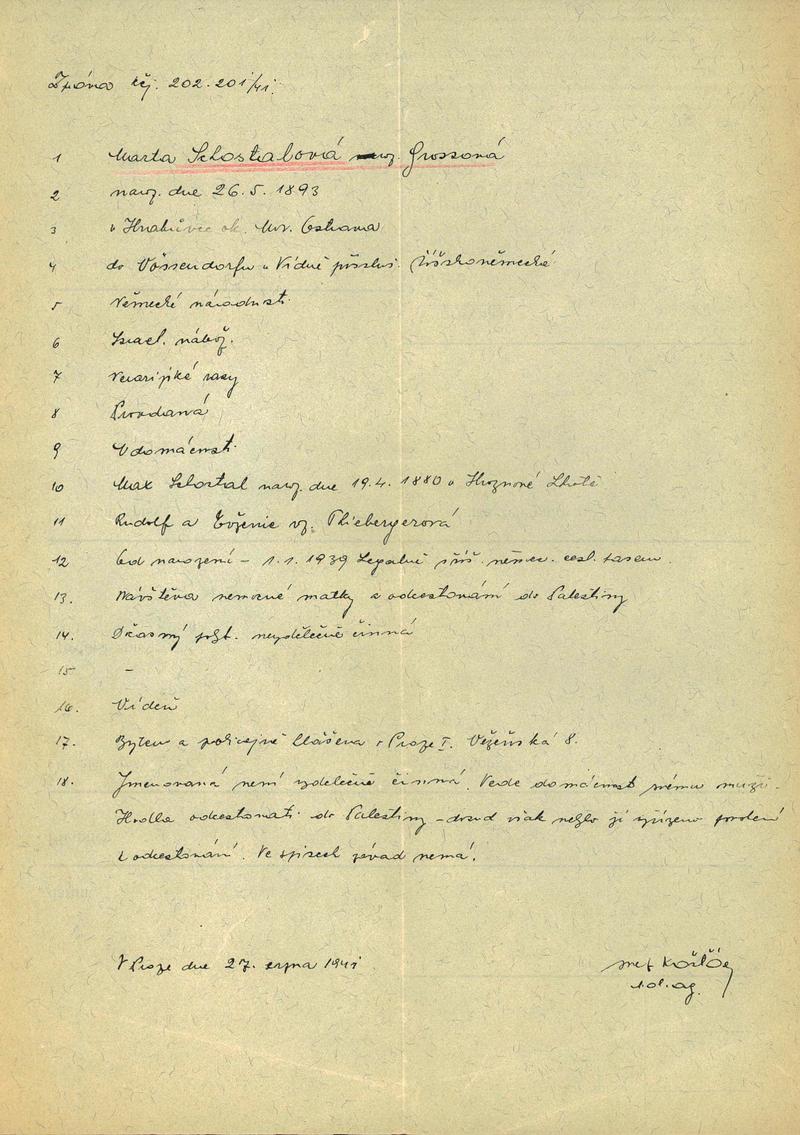 Zpráva čj. 202.201/41.
1 Marta Schostalová naroz. Grossová
2 naroz. dne 26.5.1893
3 v Hrabůvce ok. Mor. Ostrava
4 do Vössendorfu u Vídně přísluš. říšskoněmecké
5 Německé národnosti
6 Israel. nábož.
7 Nearijské rasy
8 Provdaná
9 V domácnosti
10 Max Schostal naroz. dne 19.4.1880 v Hroznové Lhotě
11 Rudolf a Evženie roz. Fliebergerová
12 Od narození - 1.1.1939 Legalně říš. němec. cest. pasem.
13. Návštěva nemocné matky a odcestování do Palestiny
14. Dčasný pobt. nevýdělečně činná
15 -
16. Vídeň
17. Bytem a policejně hlášena v Praze I. Vězeňská 8.
18. Jmenovaná není výdělečně činná. Vede domácnost svému muži.
Hodla odcestovati do Palestiny - dosud však nebylo jí vyřízeno povolení
k odcestování. Ve spisech závad nemá.
V Praze dne 27. srpna 1941
pol. ag.